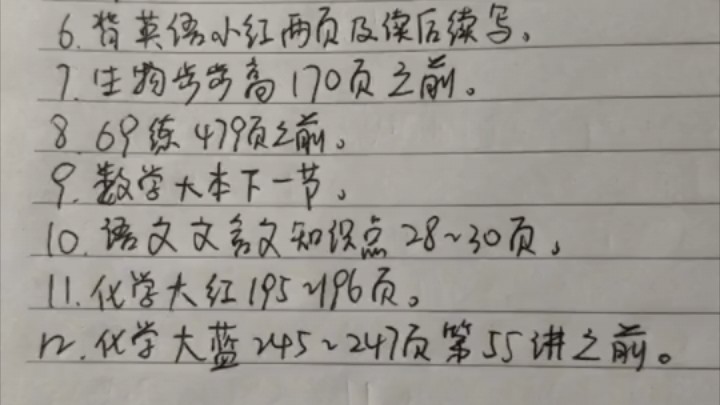 6. 背英语小红两页及读后续写。
7. 生物步步高170页之前。
8. 69练479页之前。
9. 数学大本下一节。
10. 语文文言文知识点28~30页。
11. 化学大红195~196页。
12. 化学大蓝245~247页第55讲之前。